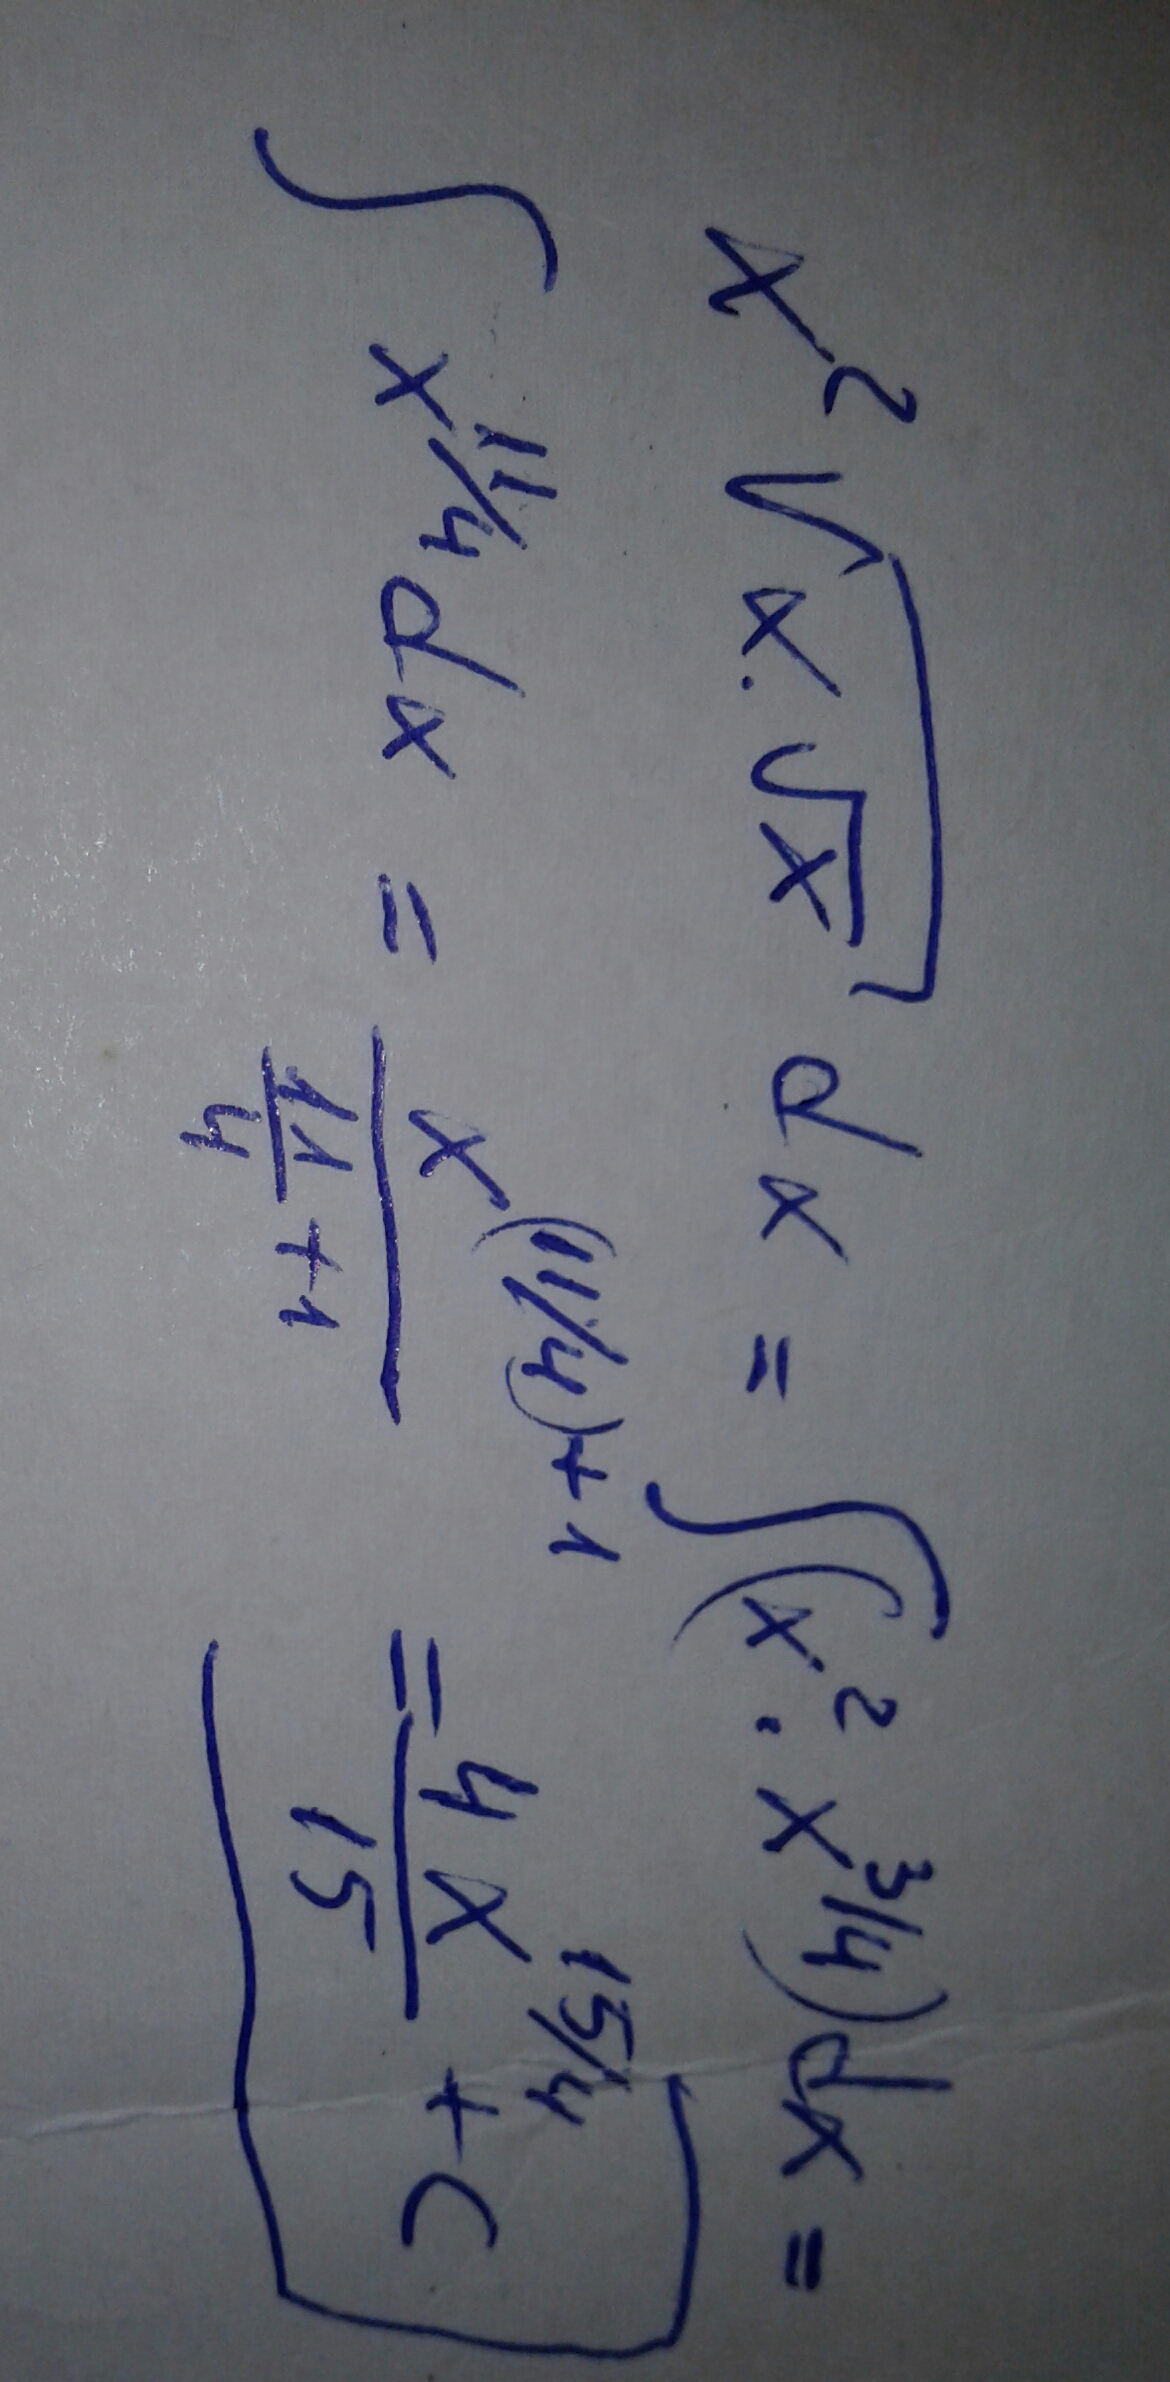 x² √(x·√x) dx = ∫(x² · x^(3/4))dx =
∫ x^(11/4) dx = x^((11/4)+1) / (11/4 + 1) = 4x^(15/4) / 15 + C